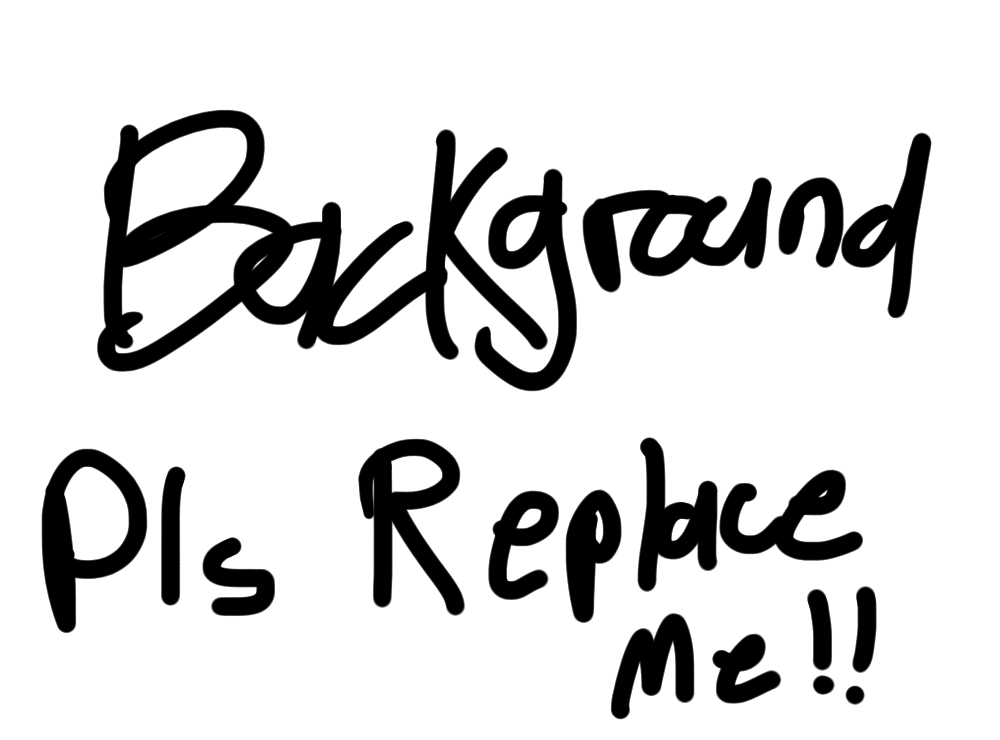 Background
Pls Replace
Me!!